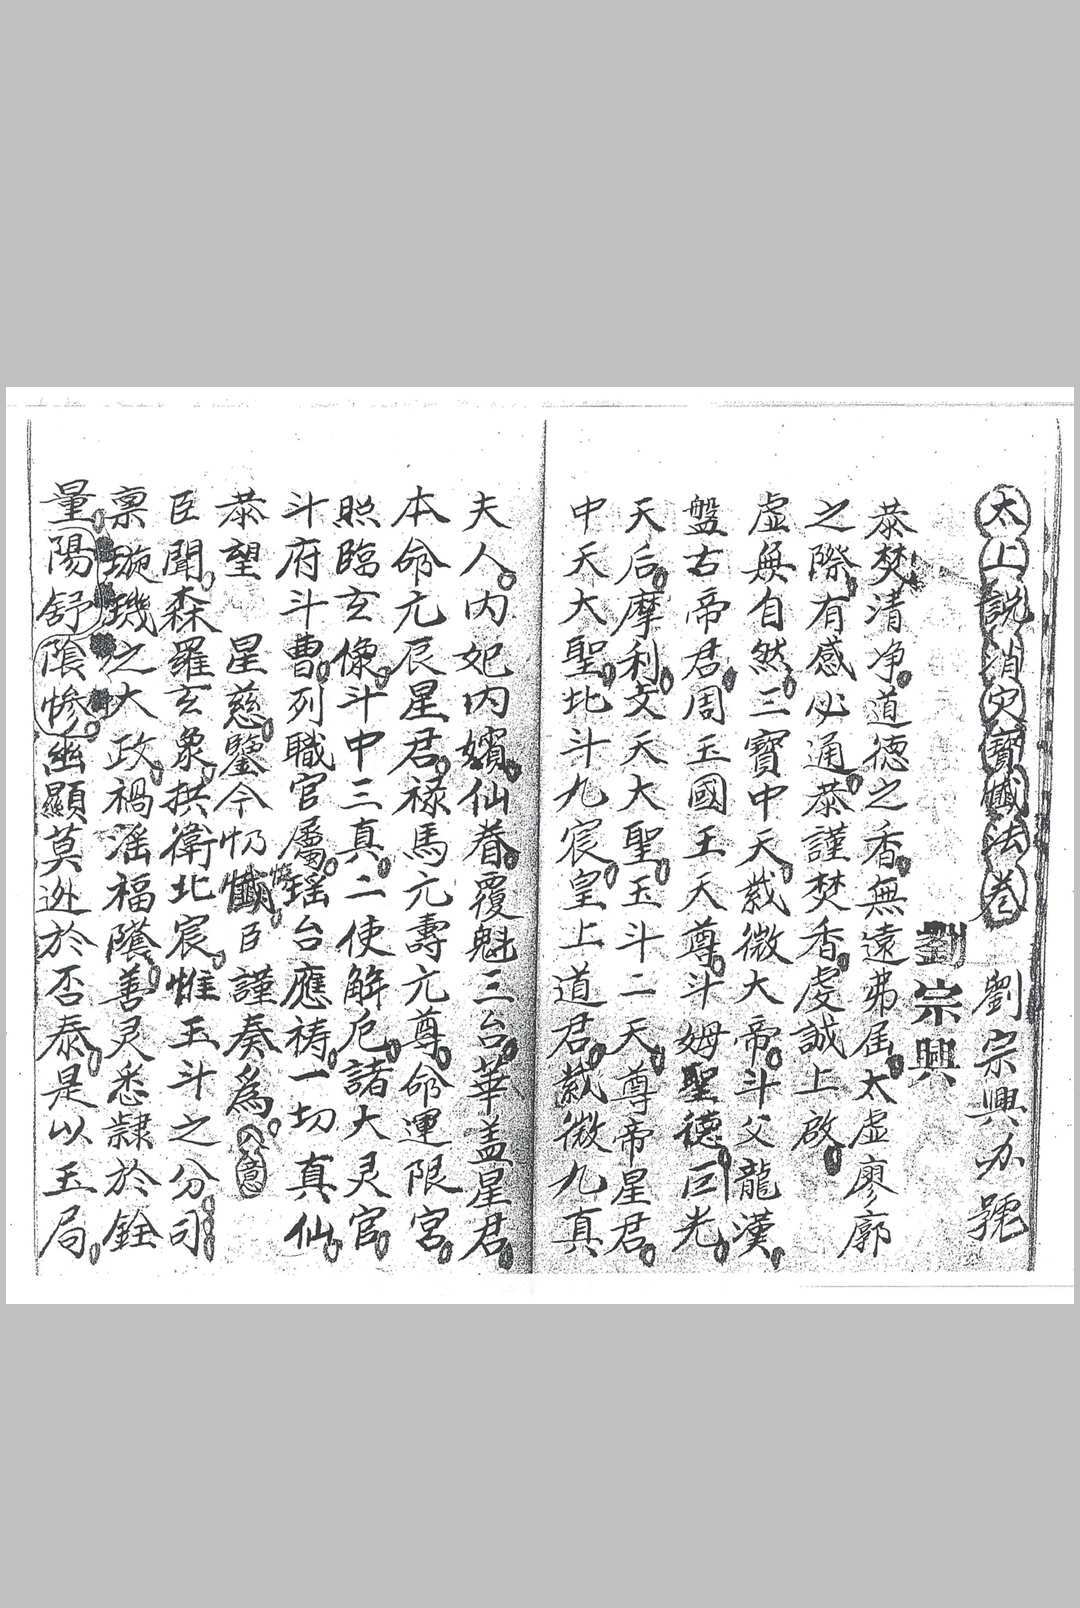 太上說消灾寶懺法卷 劉宗興办號
劉宗興
恭焚清净。道德之香。無遠弗屆。太虛廖廓
之際。有感必通。恭謹焚香。虔誠上啟。
虛無自然。三寶中天。紫微大帝。斗父龍漢。
盤古帝君。周玉國王天尊。斗姆聖德。回光。
天后。摩利攴天大聖。玉斗二天。尊帝星君。
中天大聖。北斗九宸。皇上道君。紫微九真
夫人。内妃内嬪。仙眷。覆魁三台。華盖星君。
本命元辰星君。禄馬元壽元尊。命運限宮。
照臨玄像。斗中三真。二使解厄。諸大灵官。
斗府斗曹。列職官屬。瑶台應祷。一切真仙。
恭望 星慈。鑒今 懺。臣謹奏爲。入意
臣聞。森羅玄象。拱衛北宸。惟玉斗之分司
禀璇璣之大政。禍滛福隲。善灵悉隷於銓
量。陽舒隂惨。幽顯莫迯於否泰。是以玉局。